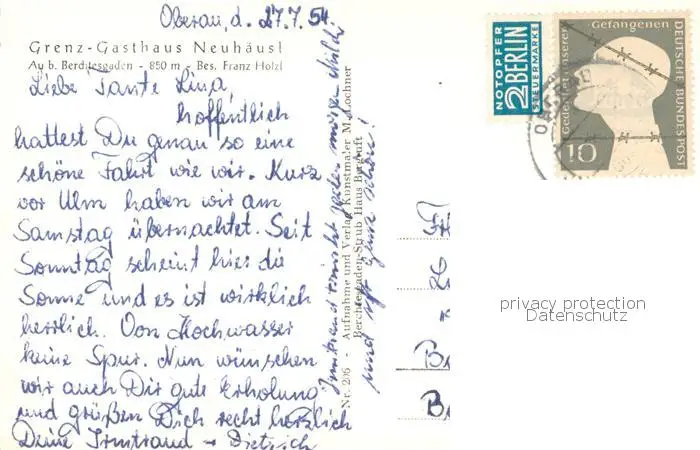 Oberau, d. 27.7.54.
Grenz-Gasthaus Neuhäusl
Au b. Berchtesgaden - 850 m - Bes. Franz Hölzl
Liebe Tante Lina,
hoffentlich
hattest Du genau so eine
schöne Fahrt wie wir. Kurz
vor Ulm haben wir am
Samstag übernachtet. Seit
Sonntag scheint hier die
Sonne und es ist wirklich
herrlich. Von Hochwasser
keine Spur. Nun wünschen
wir auch Dir gute Erholung
und grüßen Dich recht herzlich
Deine Irmtraud + Dietrich
Irmtraud trinkt jeden morgen Milch
und ißt ganz schön!
Nr. 206 - Aufnahme und Verlag Kunstmaler M. Lochner
Berchtesgaden-Strub Haus Bergluft
NOTOPFER
2 BERLIN
STEUERMARKE
Gedenket unserer Gefangenen
DEUTSCHE BUNDESPOST
10
Fr
26
B
B
privacy protection
Datenschutz